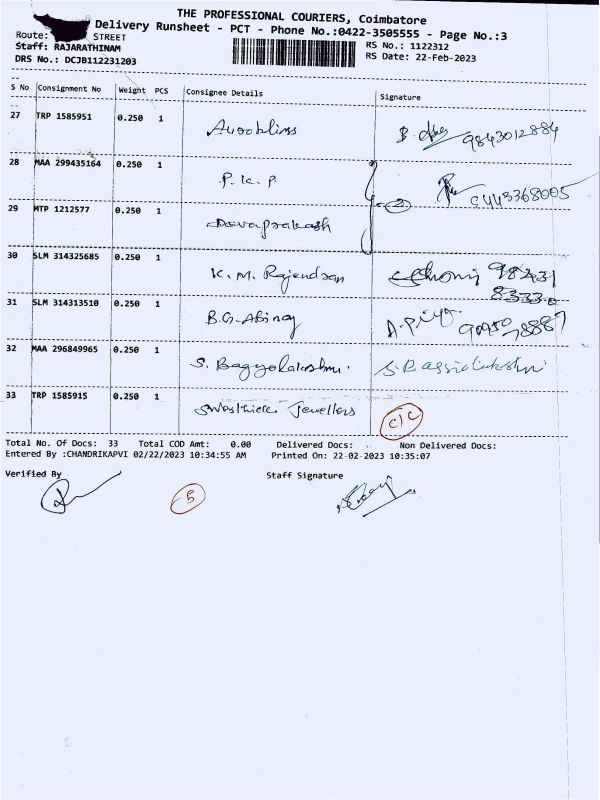 THE PROFESSIONAL COURIERS, Coimbatore
Delivery Runsheet - PCT - Phone No.:0422-3505555 - Page No.:3
Route: STREET
RS No.: 1122312
Staff: RAJARATHINAM
RS Date: 22-Feb-2023
DRS No.: DCJB112231203
S No Consignment No Weight PCS Consignee Details Signature
27 TRP 1585951 0.250 1 9843012884
28 MAA 299435164 0.250 1 P. K. P. 9443368005
29 MTP 1212577 0.250 1 Devaprakash 2
30 SLM 314325685 0.250 1 K. M. Rajendran
31 SLM 314313510 0.250 1 B.G. Abinay
32 MAA 296849965 0.250 1 S. Bagyalakshmi.
33 TRP 1585915 0.250 1 Swasthick Jewellers C/C
Total No. Of Docs: 33 Total COD Amt: 0.00 Delivered Docs: Non Delivered Docs:
Entered By :CHANDRIKAPVI 02/22/2023 10:34:55 AM Printed On: 22-02-2023 10:35:07
Verified By Staff Signature